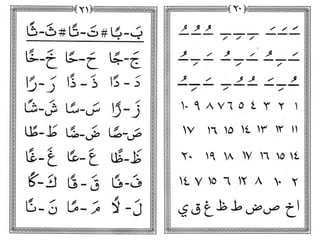 (٢٠)
١ ٢ ٣ ٤ ٥ ٦ ٧ ٨ ٩ ١٠
١١ ١٢ ١٣ ١٤ ١٥ ١٦ ١٧
١٤ ١٥ ١٦ ١٧ ١٨ ١٩ ٢٠
٢ ١٠ ٨ ١٢ ٦ ١٥ ٧ ١٤
اخ ص ض ط ظ غ ق ي
(٢١)
بَ - بًا # تَ - تًا # ثَ - ثًا
جَ - جًا حَ - حًا خَ - خًا
دَ - دًا ذَ - ذًا رَ - رًا
زَ - زًا سَ - سًا شَ - شًا
صَ - صًا ضَ - ضًا طَ - طًا
ظَ - ظًا عَ - عًا غَ - غًا
فَ - فًا قَ - قًا كَ - كًا
لَ - لًا مَ - مًا نَ - نًا